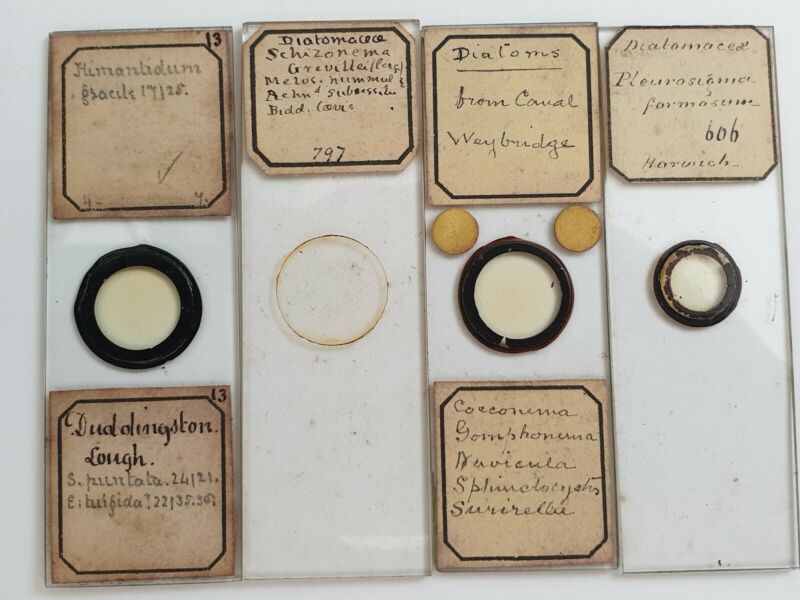 13
Himantidum
gracile 17/25.
4- 7.
13
Duddingston.
Lough.
S. puntata. 24/21.
E: turgida? 22/35.36
Diatomaceæ
Schizonema
Grevillei (Cag)
Melos. nummul &
Achnd subsessile
Bidd. lævis
797
Diatoms
from Canal
Weybridge
Cocconema
Gomphonema
Navicula
Sphinctocystis
Surirella
Diatomaceæ
Pleurosigma
formosum
606
Harwich